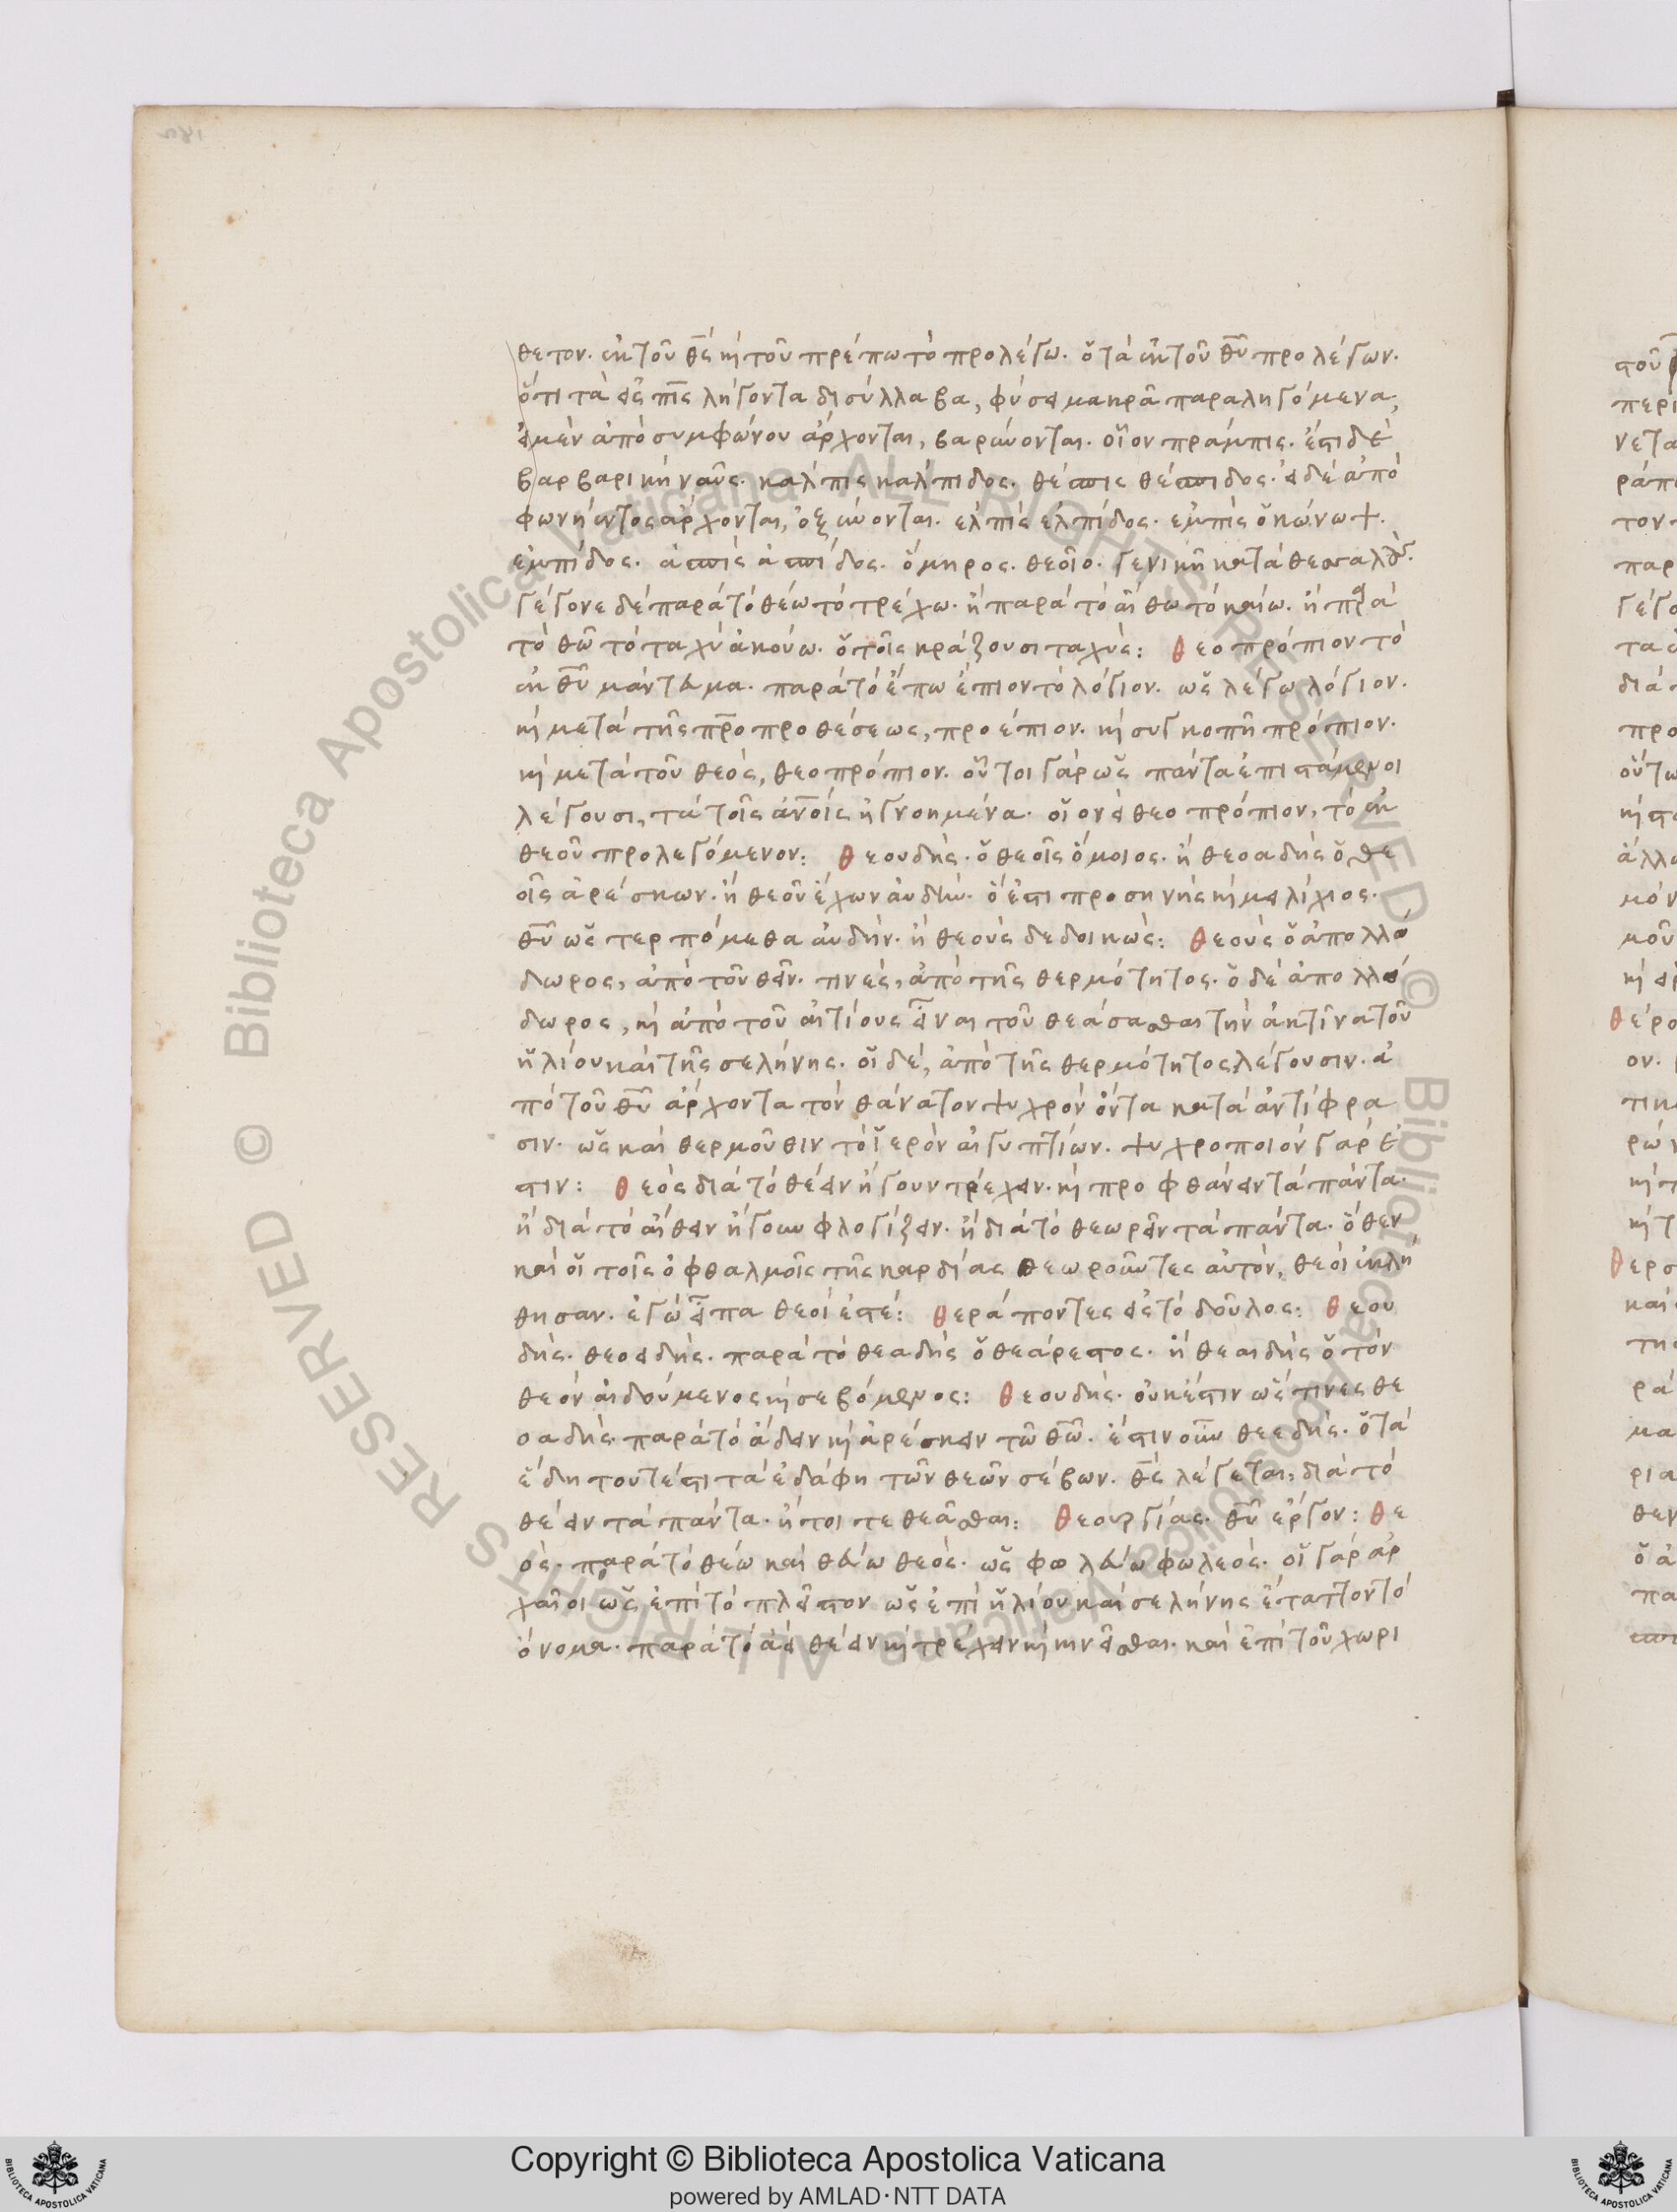 θετον. ἐκ τοῦ θς καὶ τοῦ πρέπω τὸ προλέγω. ὁ τὰ ἐκ τοῦ θυ προλέγων.
ὅτι τὰ εἰς πις λήγοντα δισύλλαβα, φύσει μακρᾶ παραληγόμενα,
εἰ μὲν ἀπὸ συμφώνου ἄρχονται, βαρύνονται. οἷον πράμπις. ἔστι δὲ
βαρβαρικὴ ναῦς. κάλπις κάλπιδος. θέσπις θέσπιδος. εἰ δὲ ἀπὸ
φωνήεντος ἄρχονται, ὀξύνονται. ἐλπίς ἐλπίδος. ἐμπίς ὁ κώνωψ.
ἐμπίδος. ἀσπίς ἀσπίδος. ὅμηρος. θεοῖο. γενικὴ κατὰ θεσσαλούς.
γέγονε δὲ παρὰ τὸ θέω τὸ τρέχω. ἢ παρὰ τὸ αἴθω τὸ καίω. ἢ παρὰ
τὸ θῶ τὸ ταχὺ ἀκούω. ὁ τοῖς κράζουσι ταχύς: θεοπρόπιον τὸ
ἐκ θυ μάντευμα. παρὰ τὸ ἔπω ἔπιον τὸ λόγιον. ὡς λέγω λόγιον.
καὶ μετὰ τῆς προ προθέσεως, προέπιον. καὶ συγκοπῆ πρόπιον.
καὶ μετὰ τοῦ θεός, θεοπρόπιον. οὗτοι γὰρ ὡς πάντα ἐπιστάμενοι
λέγουσι, τὰ τοῖς ἀνοις ἠγνοημένα. οἱονεὶ θεοπρόπιον, τὸ ἐκ
θεοῦ προλεγόμενον: θεουδής. ὁ θεοῖς ὅμοιος. ἢ θεοαδής ὁ θε
οῖς ἀρέσκων. ἢ θεοῦ ἔχων αὐδὴν. ὅ ἐστι προσηνής καὶ μειλίχιος.
θυ ὡς τερπόμεθα αὐδήν. ἢ θεοὺς δεδοικώς: θεούς ὁ ἀπολλό
δωρος, ἀπὸ τοῦ θεῖν. τινές, ἀπὸ τῆς θερμότητος. ὁ δὲ ἀπολλό
δωρος, καὶ ἀπὸ τοῦ αἰτίους εἶναι τοῦ θεάσασθαι τὴν ἀκτῖνα τοῦ
ἡλίου καὶ τῆς σελήνης. οἱ δὲ, ἀπὸ τῆς θερμότητος λέγουσιν. ἀ
πὸ τοῦ θυ ἄρχοντα τὸν θάνατον ψυχρὸν ὄντα κατὰ ἀντίφρα
σιν. ὡς καὶ θερμοῦθιν τὸ ἱερὸν αἰγυπτίων. ψυχροποιὸν γάρ ἐ
στιν: θεός διὰ τὸ θέειν ἤγουν τρέχειν. καὶ προφθάνειν τὰ πάντα.
ἢ διὰ τὸ αἴθειν ἤγουν φλογίζειν. ἢ διὰ τὸ θεωρεῖν τὰ πάντα. ὅθεν
καὶ οἱ τοῖς ὀφθαλμοῖς τῆς καρδίας θεωροῦντες αὐτόν, θεοὶ ἐκλή
θησαν. ἐγὼ εἶπα θεοί ἐστέ: θεράποντες εἰς τὸ δοῦλος: θεου
δής. θεοειδής. παρὰ τὸ θεαδής ὁ θεάρεστος. ἢ θεαιδής ὁ τὸν
θεὸν αἰδούμενος καὶ σεβόμενος: θεουδής. οὐκ ἔστιν ὥς τινες θε
οαδής παρὰ τὸ ἄδειν καὶ ἀρέσκειν τῶ θῶ. ἔστιν οὖν θεεδής. ὁ τὰ
ἕδη τουτέστι τὰ ἐδάφη τῶν θεῶν σέβων. θς λέγεται, διὰ τὸ
θέειν τὰ πάντα. ἤτοι τεθεᾶσθαι: θεουργίας. θυ ἔργον: θε
ός. παρὰ τὸ θέω καὶ θεύω θεός. ὡς φωλεύω φωλεός. οἱ γὰρ ἀρ
χαῖοι ὡς ἐπὶ τὸ πλεῖστον ὡς ἐπὶ ἡλίου καὶ σελήνης ἔταττον τὸ
ὄνομα. παρὰ τὸ ἀεὶ θέειν καὶ τρέχειν καὶ κινεῖσθαι. καὶ ἐπὶ τοῦ χωρι
Copyright © Biblioteca Apostolica Vaticana
powered by AMLAD·NTT DATA